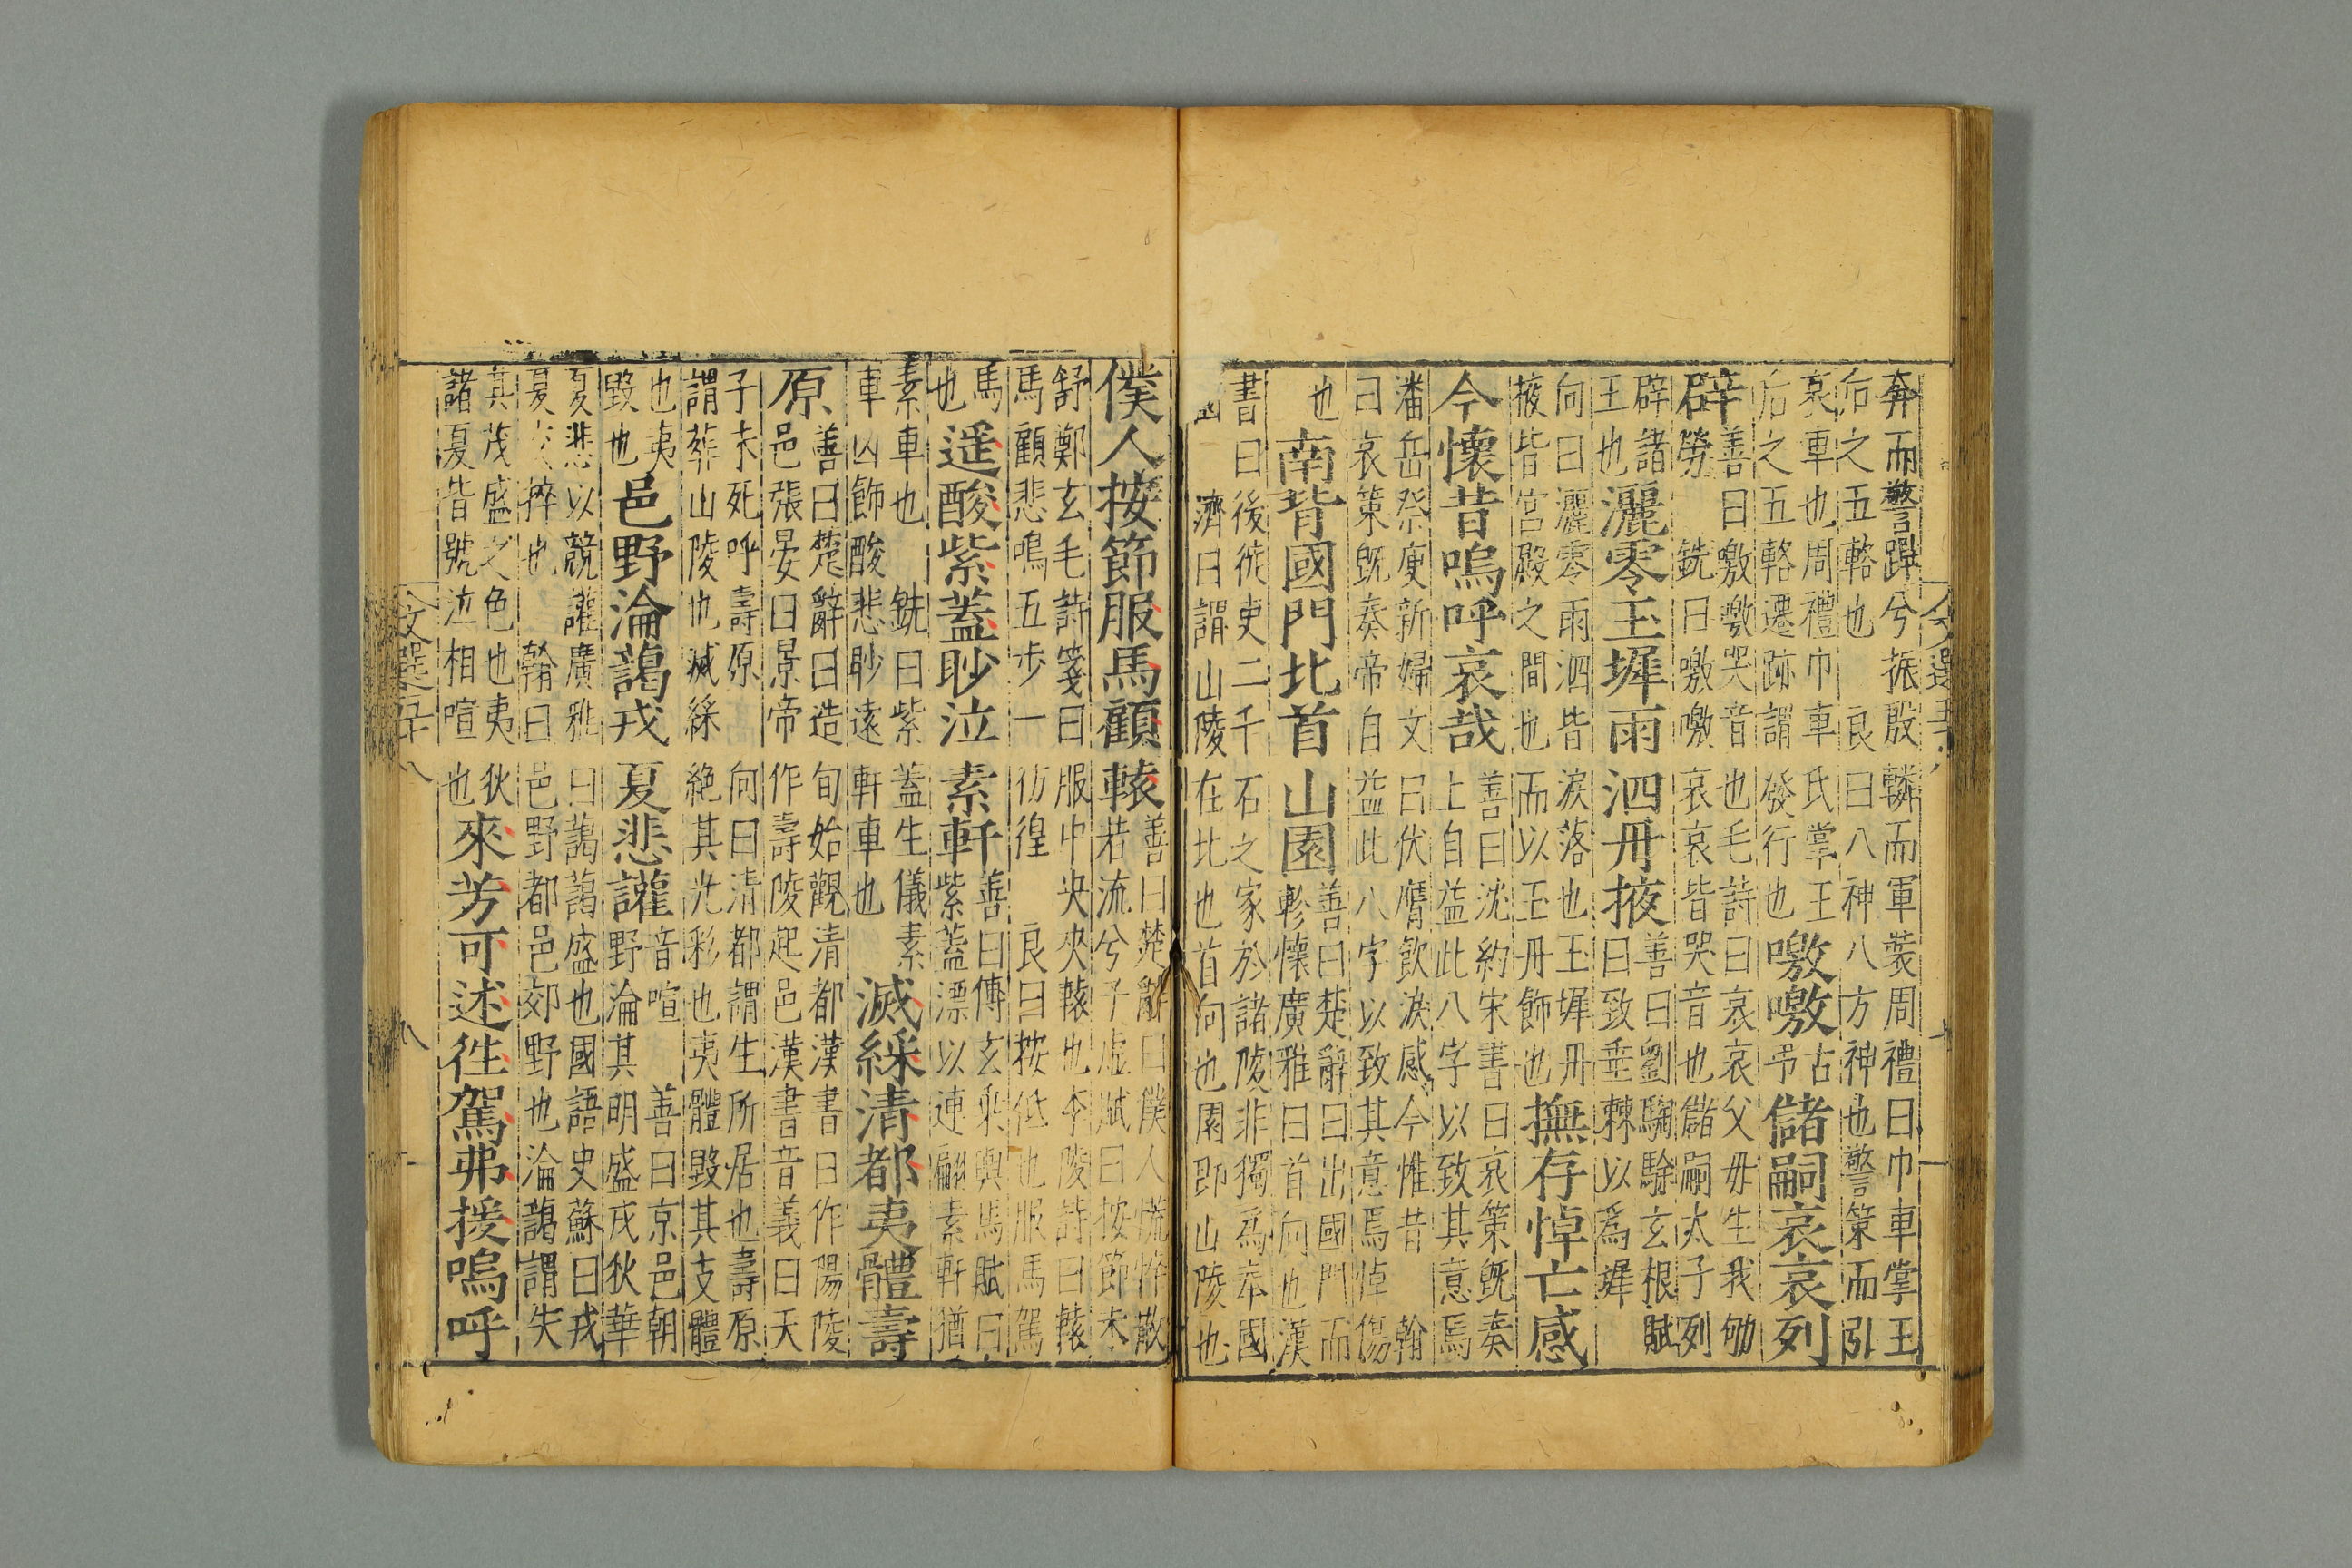 奔而警蹕兮振殷轔而軍裝周禮曰巾車掌王
后之五輅也 良曰八神八方神也警策而引
哀車也周禮巾車氏掌王
后之五輅遷跡謂發行也
噭噭
古
弔
儲嗣哀哀列
辟
善曰噭噭哭音也毛詩曰哀哀父毋生我劬
勞 銑曰噭噭哀哀皆哭音也儲嗣太子列
辟諸
王也
灑零玉墀雨泗丹掖
善曰劉騊駼玄根賦
曰致垂棘以爲墀
向曰灑零雨泗皆淚落也玉墀丹
掖皆宮殿之間也而以玉丹飾也
撫存悼亡感
今懷昔嗚呼哀哉
善曰沈約宋書曰哀策旣奏
上自益此八字以致其意焉
潘岳祭庾新婦文曰伏膺飲淚感今惟昔 翰
曰哀策旣奏帝自益此八字以致其意焉悼傷
也
南背國門北首山園
善曰楚辭曰出國門而
軫懷廣雅曰首向也漢
書曰後徙吏二千石之家於諸陵非獨爲奉國
濟曰謂山陵在北也首向也園即山陵也
僕人按節服馬顧轅
善曰楚辭曰僕人慌悴散
若流兮子虛賦曰按節未
舒鄭玄毛詩箋曰服中央夾轅也本陵詩曰轅
馬顧悲鳴五步一彷徨 良曰按低也服馬駕
馬
也
遥酸紫蓋眇泣素軒
善曰傅玄乘輿馬賦曰
紫蓋漂以連翩素軒猶
素車也 銑曰紫蓋生儀素
車凶飾酸悲眇遠軒車也
滅綵清都夷體壽
原
善曰楚辭曰造旬始觀清都漢書曰作陽陵
邑張晏曰景帝作壽陵起邑漢書音義曰天
子未死呼壽原 向曰清都謂生所居也壽原
謂葬山陵也滅綵絶其光彩也夷體毀其支體
也夷
毀也
邑野淪藹戎夏悲讙
音喧 善曰京邑朝
野淪其明盛戎狄華
夏悲以兢讙廣雅曰藹藹盛也國語史蘇曰戎
夏交捽也 翰曰邑野都邑郊野也淪藹謂失
其茂盛之色也夷狄
諸夏皆號泣相喧也
來芳可述徃駕弗援嗚呼
文選五十八